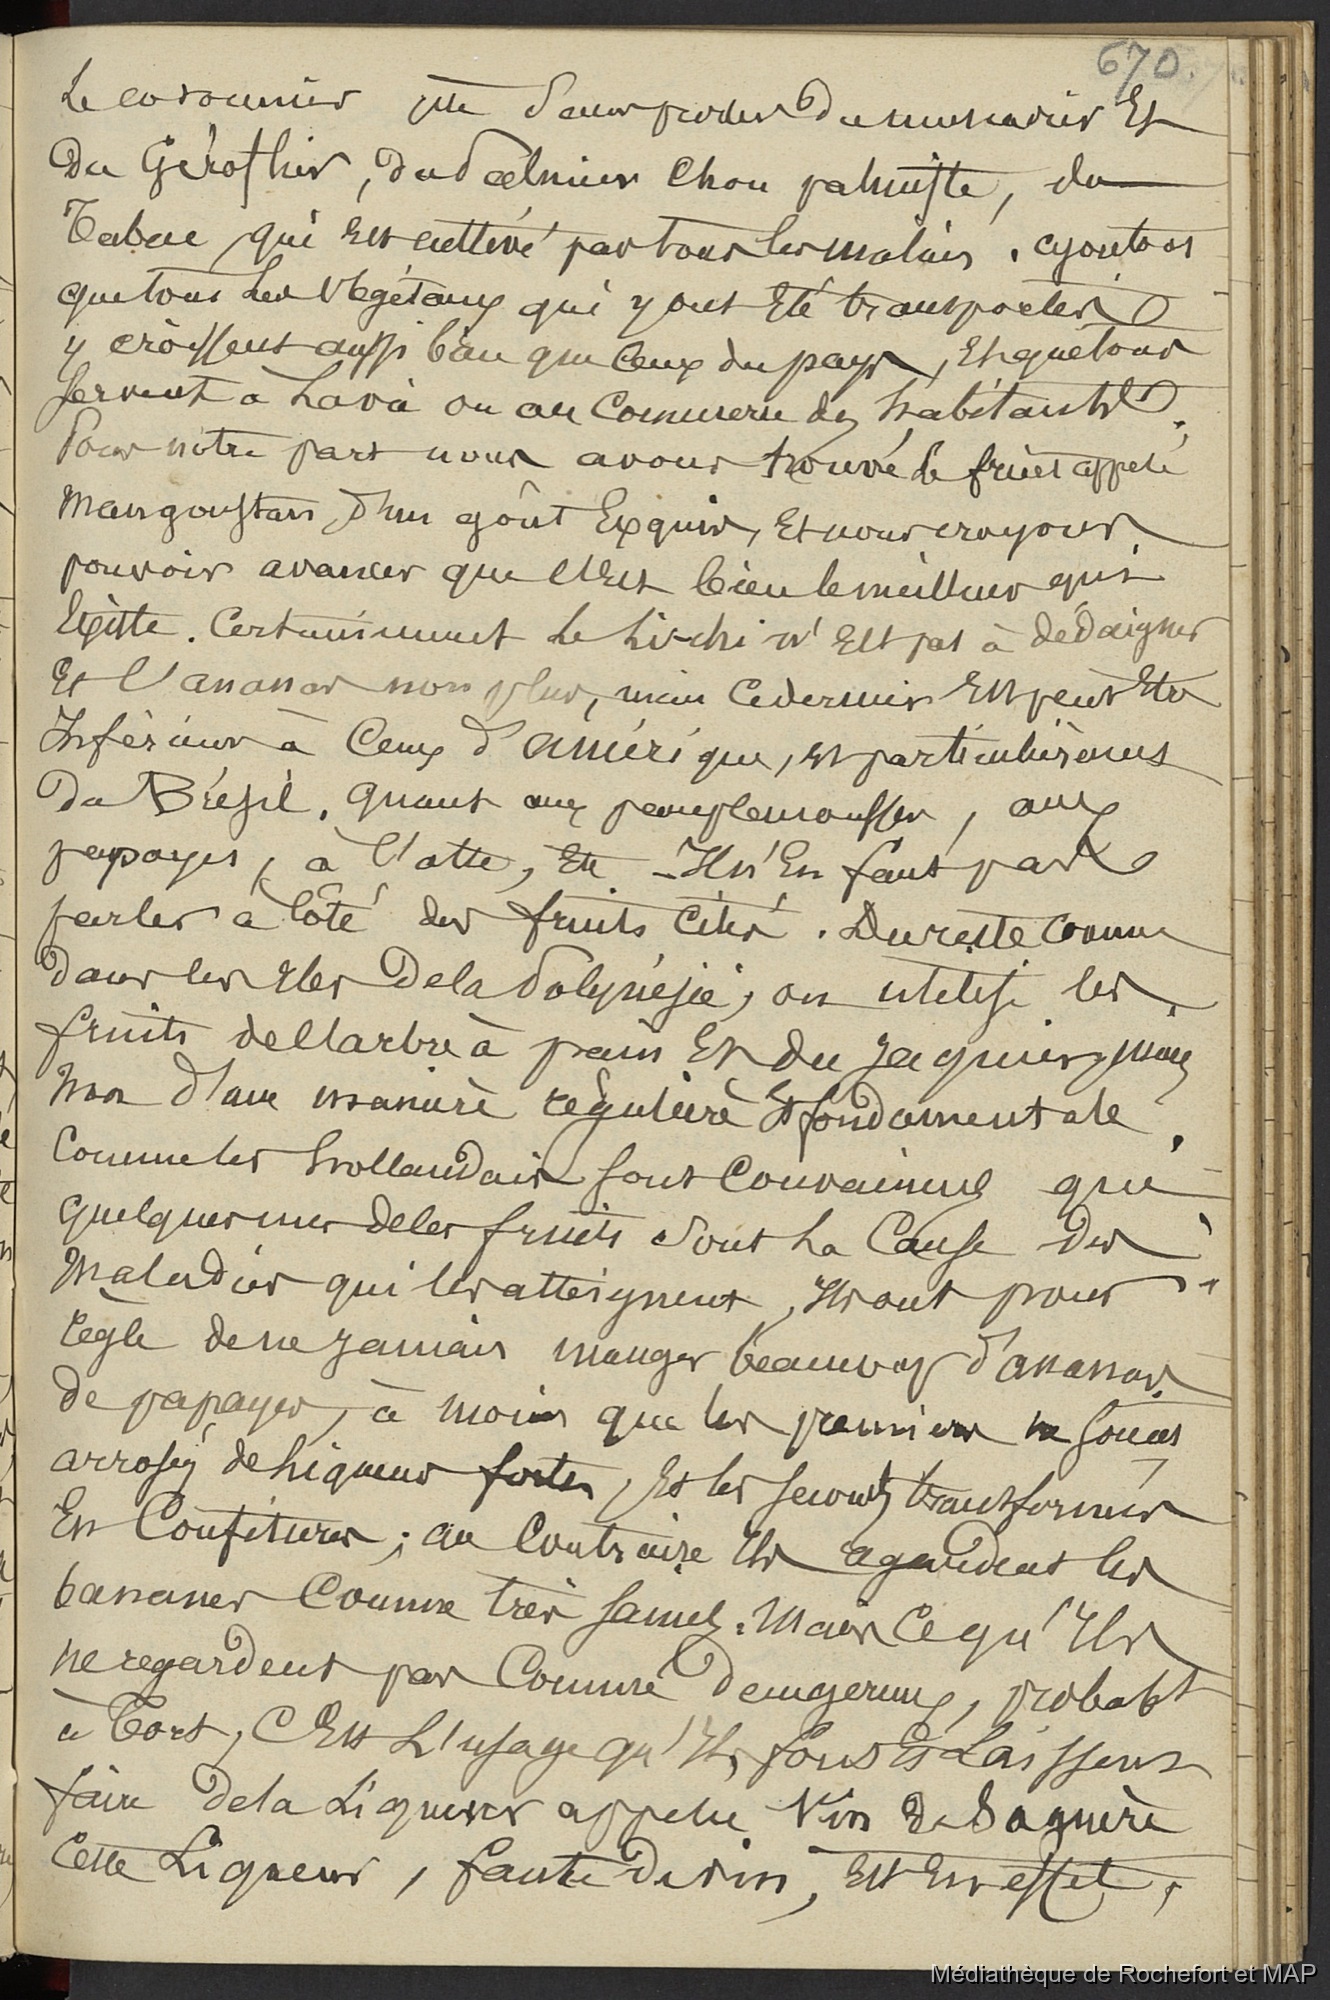 670.
Le cotonnier, etc. Sans parler du muscadier Et
Du Géroflier, du Palmier Chou palmiste, du
Tabac qui Est cultivé par tous les malais. ajoutons
que tous les Végétaux qui y ont Eté transportés
y croissent aussi bien que Ceux du pays, Et que tous
servent à Lavie ou au Commerce des habitants.
Pour notre part nous avons trouvé Le fruit appelé
Mangoustan, d'un goût Exquis, Et nous croyons
pouvoir avancer que c'Est bien le meilleur qui
Existe. Certainement Le Litchi n'Est pas à dédaigner
Et l'ananas non plus, mais Ce dernier Est peut Etre
Inférieur à Ceux d'amérique, Et particulièremt
Du Brésil. Quant aux pamplemousses, aux
papayes, à l'atte, Etc - Il n'En faut pas
parler à Côté des fruits Cités. Du reste Comme
dans les Iles De la Polynésie, on utilise les
fruits de l'arbre à pain Et du jaquier, mais
Non d'une manière régulière Et fondamentale.
Comme les hollandais sont Convaincus que
Quelques uns de les fruits sont La Cause des
Maladies qui les atteignent, Ils ont pour
règle de ne jamais manger beaucoup d'ananas,
de papayes, à moins que les premiers ne soient
arrosés de Liqueurs fortes, Et les seconds transformés
En Confitures; au Contraire Ils regardent les
bananes Comme très saines. Mais Ce qu'Ils
ne regardent pas Comme dangereux, probablt
à Tort, C'Est L'usage qu'Ils font Et Laissent
faire de la Liqueur appelée Vin de Saguère
Cette Liqueur, faute de vin, Est En effet,
Médiathèque de Rochefort et MAP